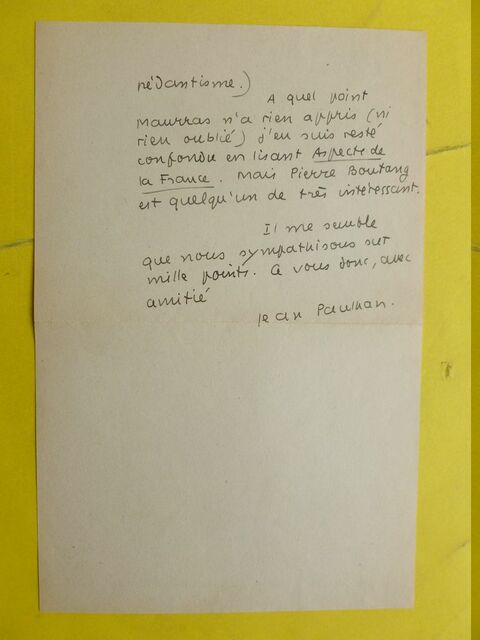 pédantisme.)
A quel point
Maurras n'a rien appris (ni
rien oublié) j'en suis resté
confondu en lisant Aspects de
la France. Mais Pierre Boutang
est quelqu'un de très intéressant.
Il me semble
que nous sympathisons sur
mille points. A vous donc, avec
amitié
Jean Paulhan.